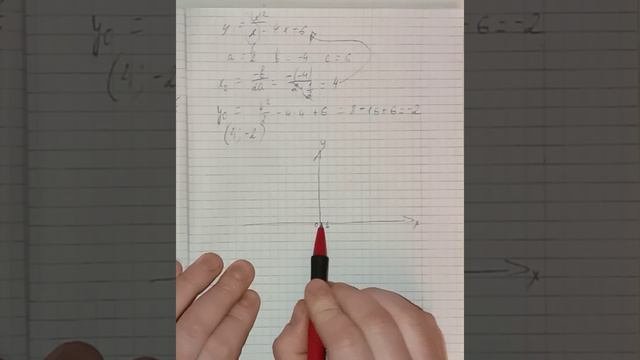 y = x²/2 - 4x + 6
a = 1/2 b = -4 c = 6
x₀ = -b/2a = -(-4)/(2·1/2) = 4
y₀ = 4²/2 - 4·4 + 6 = 8 - 16 + 6 = -2
(4; -2)
y
x